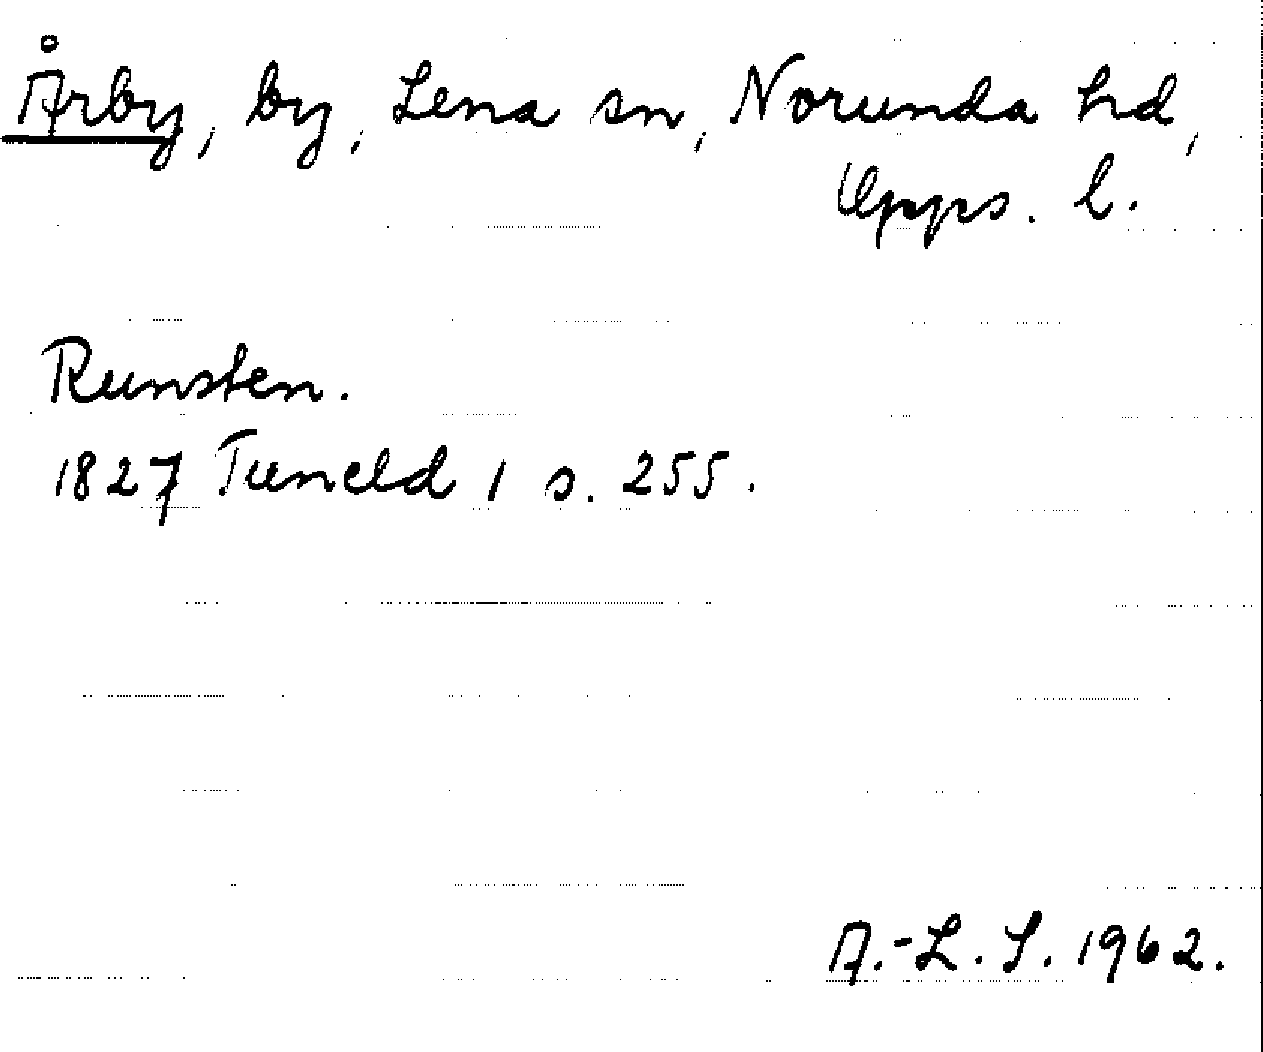 Årby, by, Lena sn, Norunda hd,
Upps. l.
Runsten.
1827 Tuneld 1 s. 255.
A.-L. S. 1962.